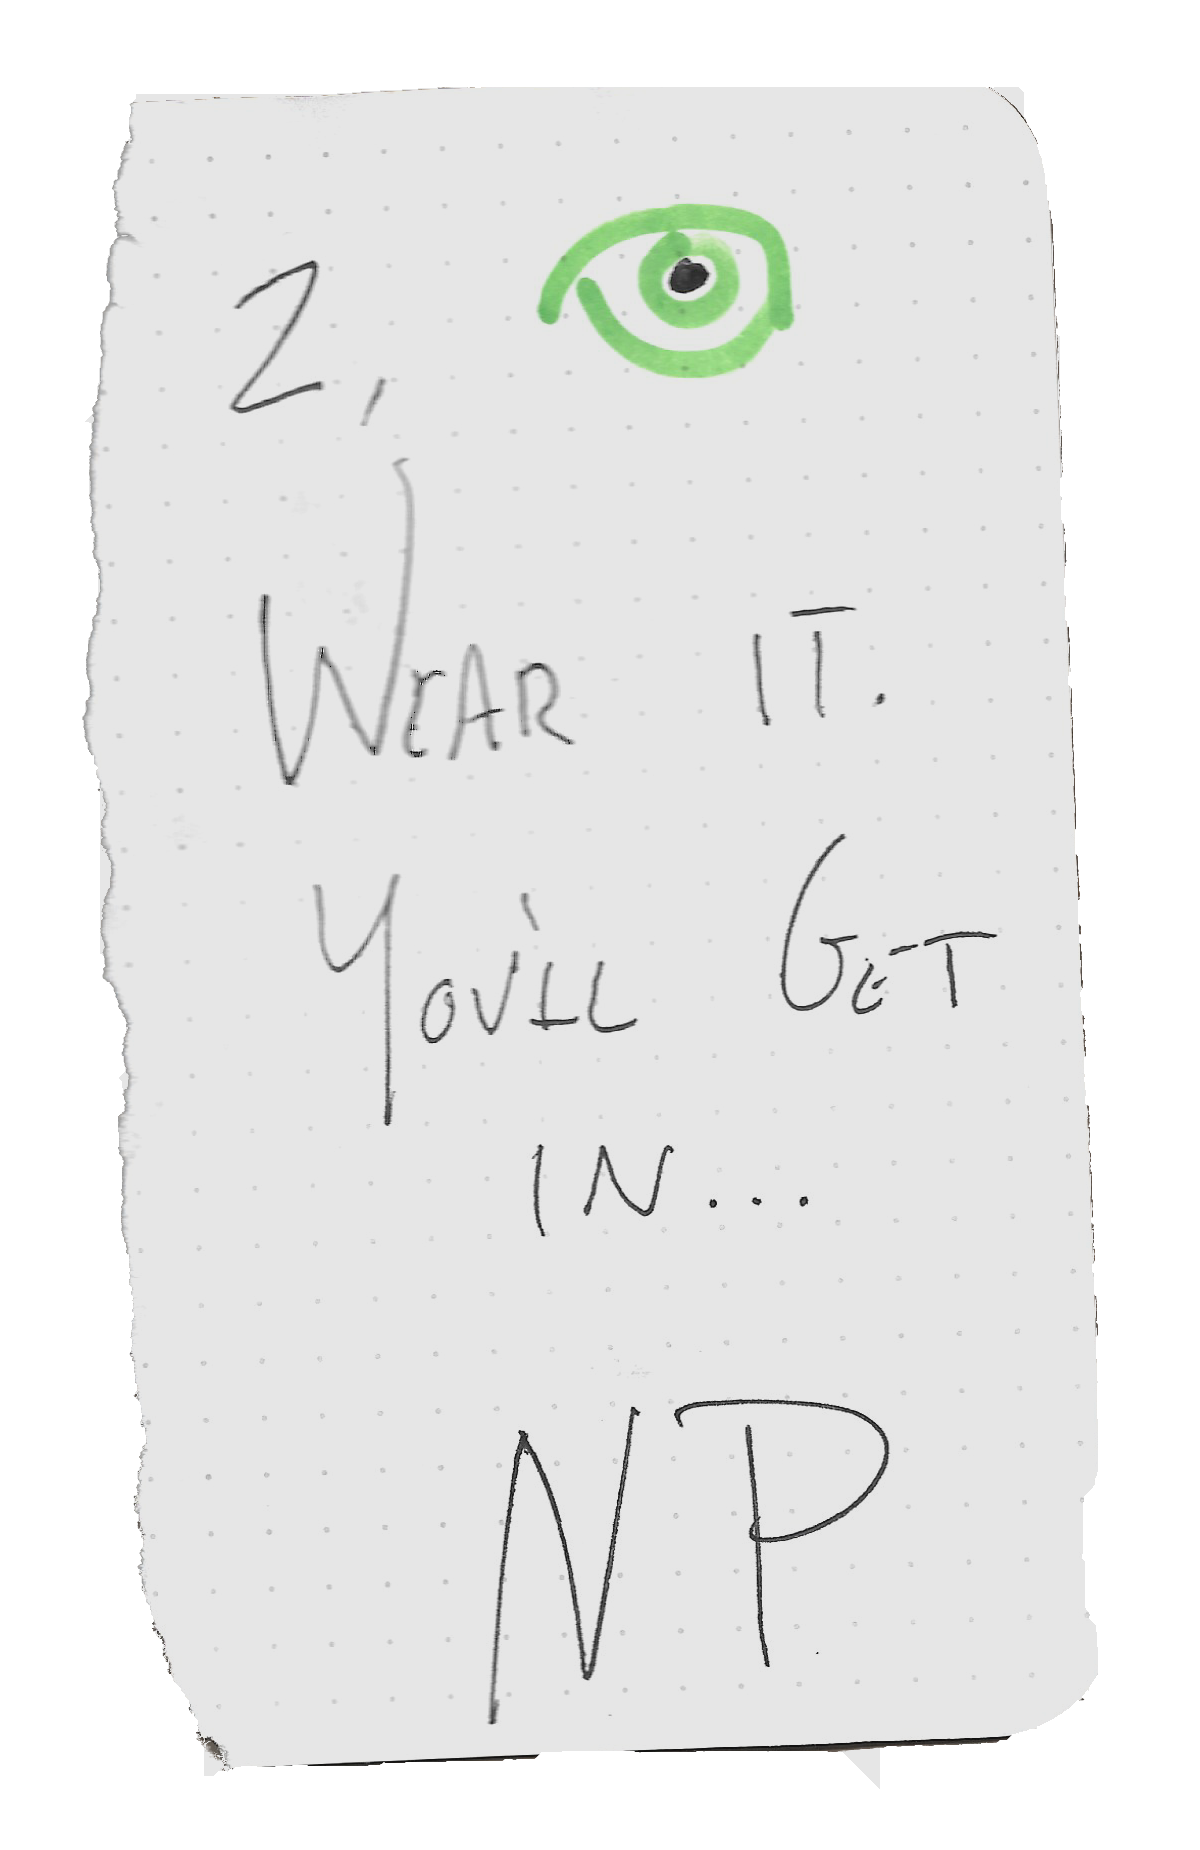 Z,
WEAR IT.
YOU'LL GET
IN...
NP